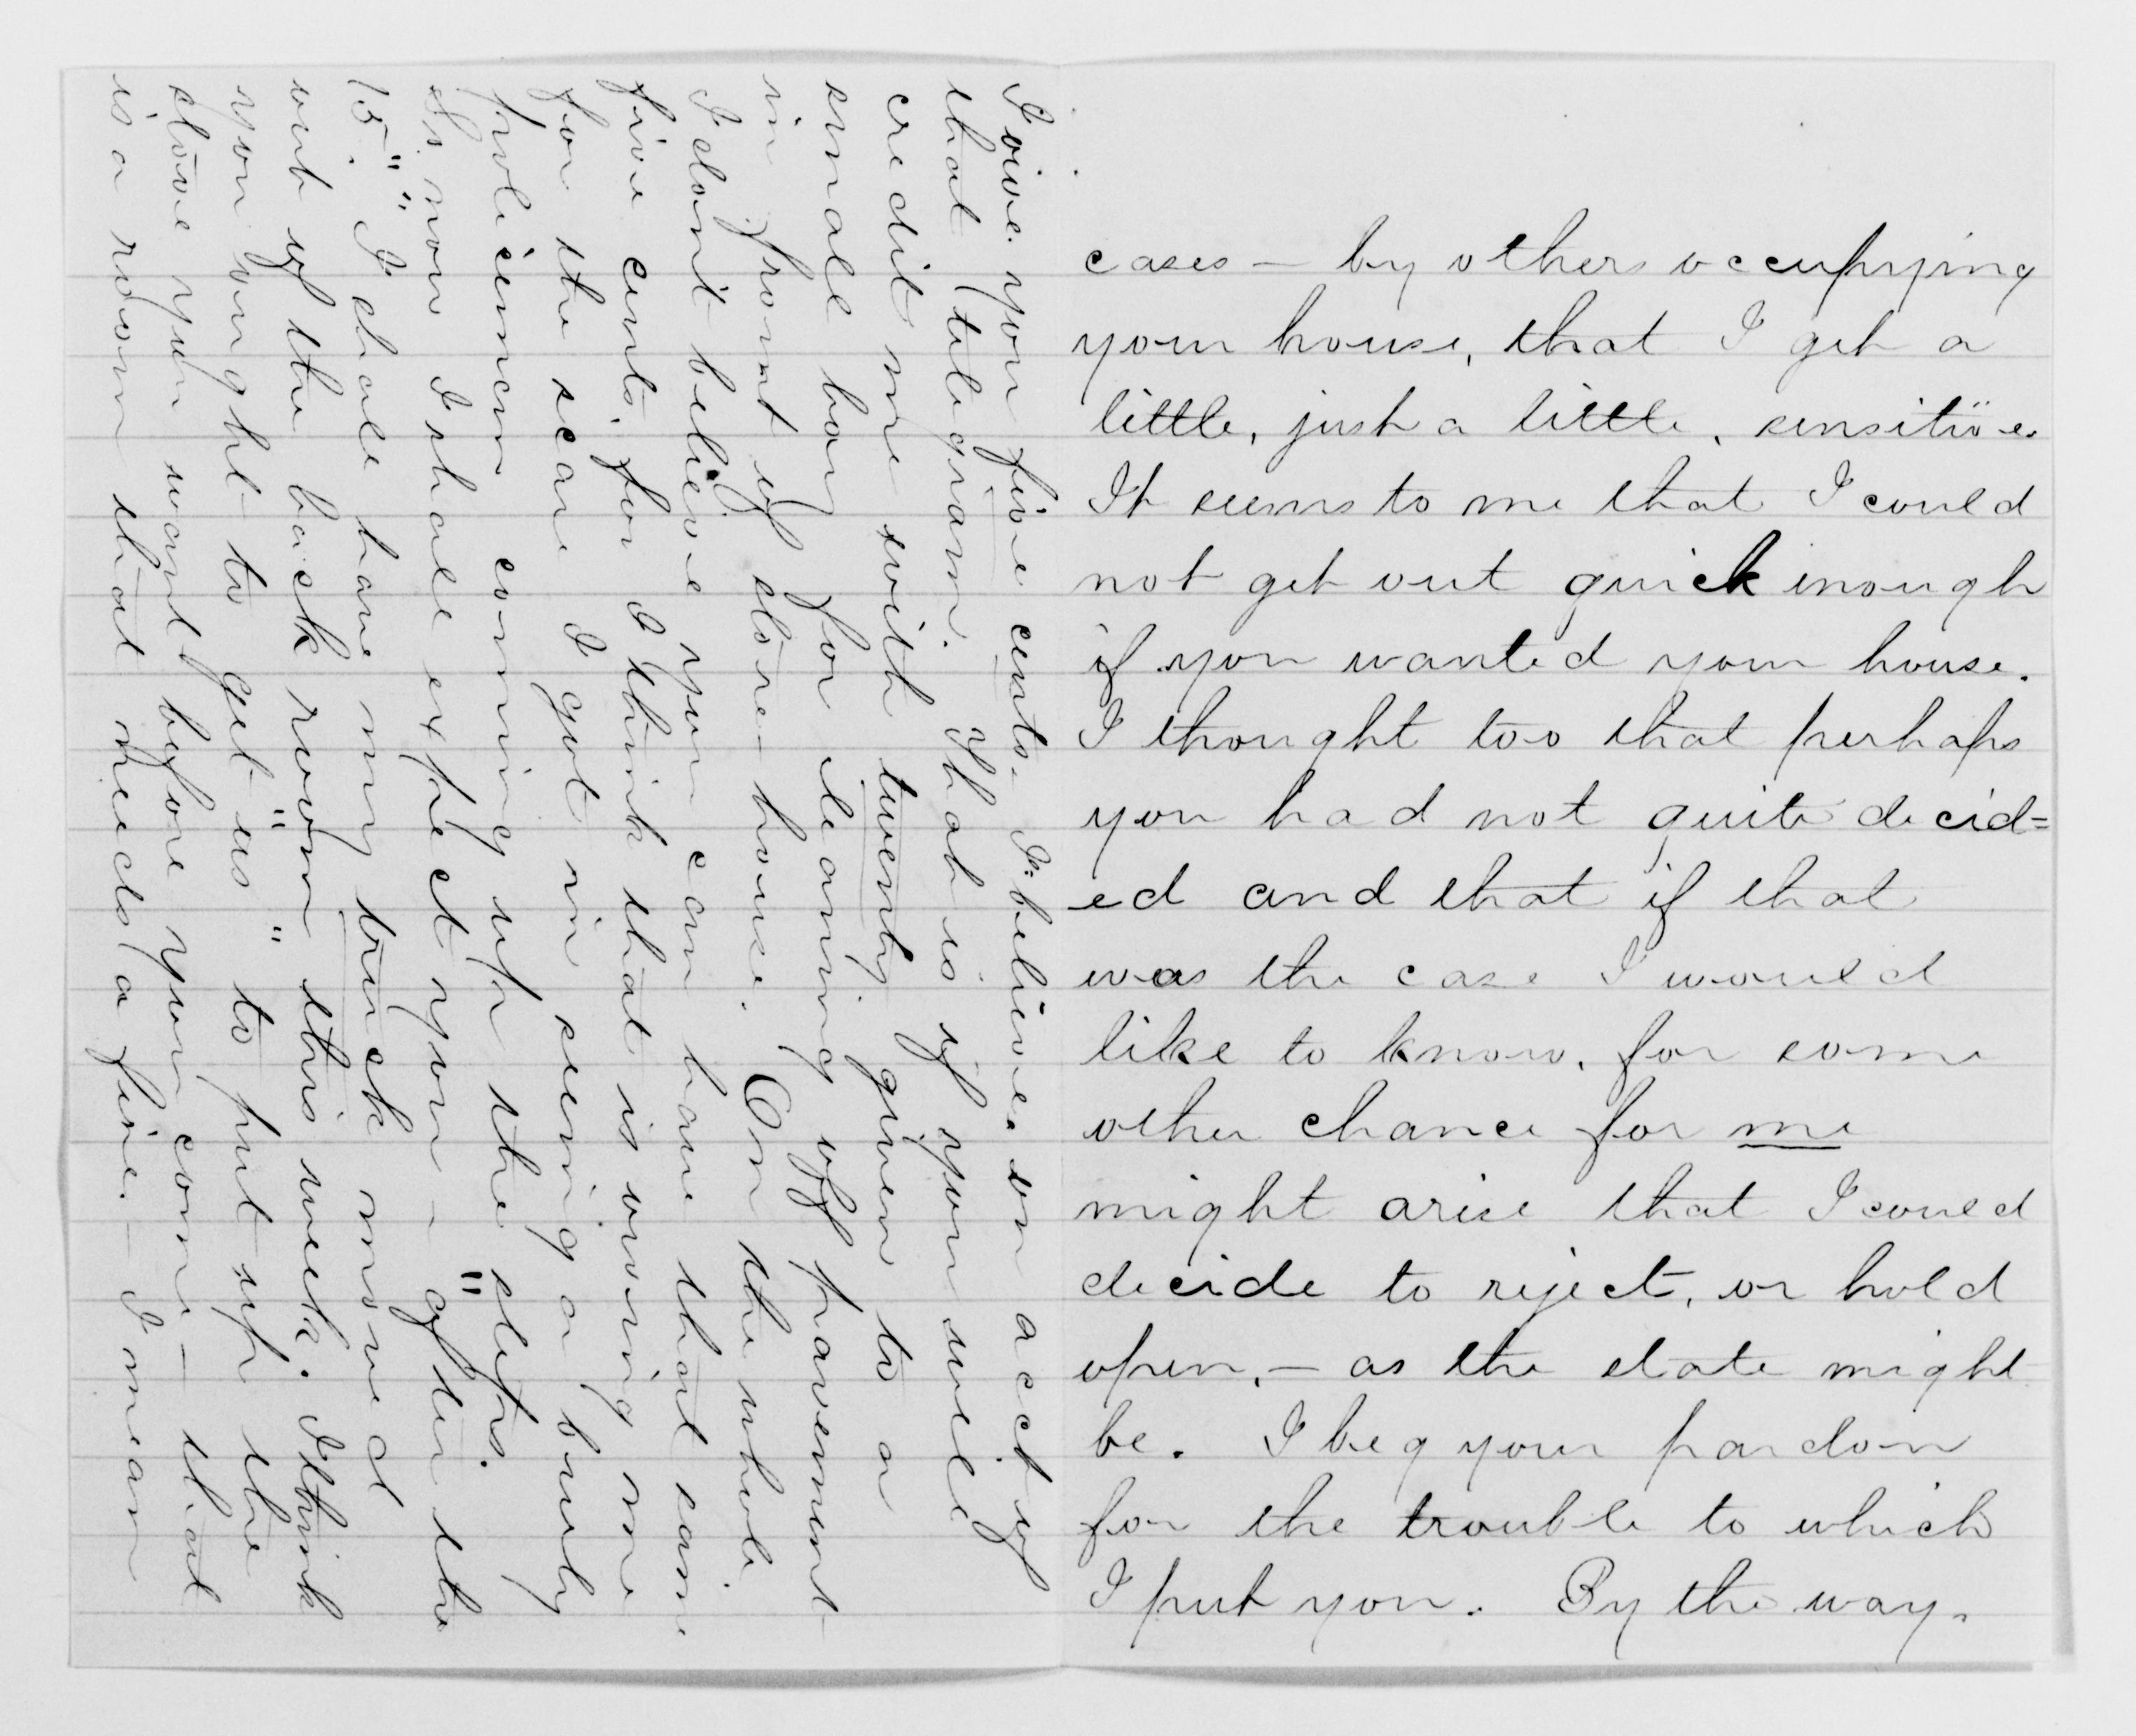 cases — by others occupying
your house, that I get a
little, just a little, sensitive.
It seems to me that I could
not get out quick enough
if you wanted your house.
I thought too that perhaps
you had not quite decid=
ed and that if that
was the case I would
like to know, for some
other chance for me
might arise that I could
decide to reject, or hold
open, — as the state might
be. I beg your pardon
for the trouble to which
I put you. By the way,
I owe you five cents. I believe, on acct of
that telegram. That is if you will
credit me with twenty given to a
small boy for cleaning off pavement
in front of store-house. On the whole
I dont believe you can have that same
five cents, for I think that is owing me
for the scare I got in seeing a burly
policeman coming up the steps.
So now I shall expect you — "after the
15". I shall have my trunk moved
out of the back room this week. I think
you ought to get "us" to put up the
stove you want before you come — that
is a room that needs a fire. — I mean